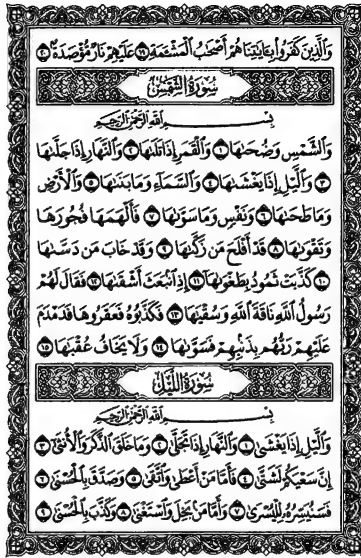 وَالَّذِينَ كَفَرُوا بِـَٔايَـٰتِنَا هُمْ أَصْحَـٰبُ الْمَشْـَٔمَةِ ١٩ عَلَيْهِمْ نَارٌ مُّؤْصَدَةٌ ٢٠
سُورَةُ الشَّمْسِ
بِسْمِ اللَّهِ الرَّحْمَـٰنِ الرَّحِيمِ
وَالشَّمْسِ وَضُحَىٰهَا ١ وَالْقَمَرِ إِذَا تَلَىٰهَا ٢ وَالنَّهَارِ إِذَا جَلَّىٰهَا
٣ وَالَّيْلِ إِذَا يَغْشَىٰهَا ٤ وَالسَّمَآءِ وَمَا بَنَىٰهَا ٥ وَالْأَرْضِ
وَمَا طَحَىٰهَا ٦ وَنَفْسٍ وَمَا سَوَّىٰهَا ٧ فَأَلْهَمَهَا فُجُورَهَا
وَتَقْوَىٰهَا ٨ قَدْ أَفْلَحَ مَن زَكَّىٰهَا ٩ وَقَدْ خَابَ مَن دَسَّىٰهَا
١٠ كَذَّبَتْ ثَمُودُ بِطَغْوَىٰهَا ١١ إِذِ انۢبَعَثَ أَشْقَىٰهَا ١٢ فَقَالَ لَهُمْ
رَسُولُ اللَّهِ نَاقَةَ اللَّهِ وَسُقْيَـٰهَا ١٣ فَكَذَّبُوهُ فَعَقَرُوهَا فَدَمْدَمَ
عَلَيْهِمْ رَبُّهُم بِذَنۢبِهِمْ فَسَوَّىٰهَا ١٤ وَلَا يَخَافُ عُقْبَـٰهَا ١٥
سُورَةُ اللَّيْلِ
بِسْمِ اللَّهِ الرَّحْمَـٰنِ الرَّحِيمِ
وَالَّيْلِ إِذَا يَغْشَىٰ ١ وَالنَّهَارِ إِذَا تَجَلَّىٰ ٢ وَمَا خَلَقَ الذَّكَرَ وَالْأُنثَىٰ ٣
إِنَّ سَعْيَكُمْ لَشَتَّىٰ ٤ فَأَمَّا مَنْ أَعْطَىٰ وَاتَّقَىٰ ٥ وَصَدَّقَ بِالْحُسْنَىٰ ٦
فَسَنُيَسِّرُهُۥ لِلْيُسْرَىٰ ٧ وَأَمَّا مَنۢ بَخِلَ وَاسْتَغْنَىٰ ٨ وَكَذَّبَ بِالْحُسْنَىٰ ٩